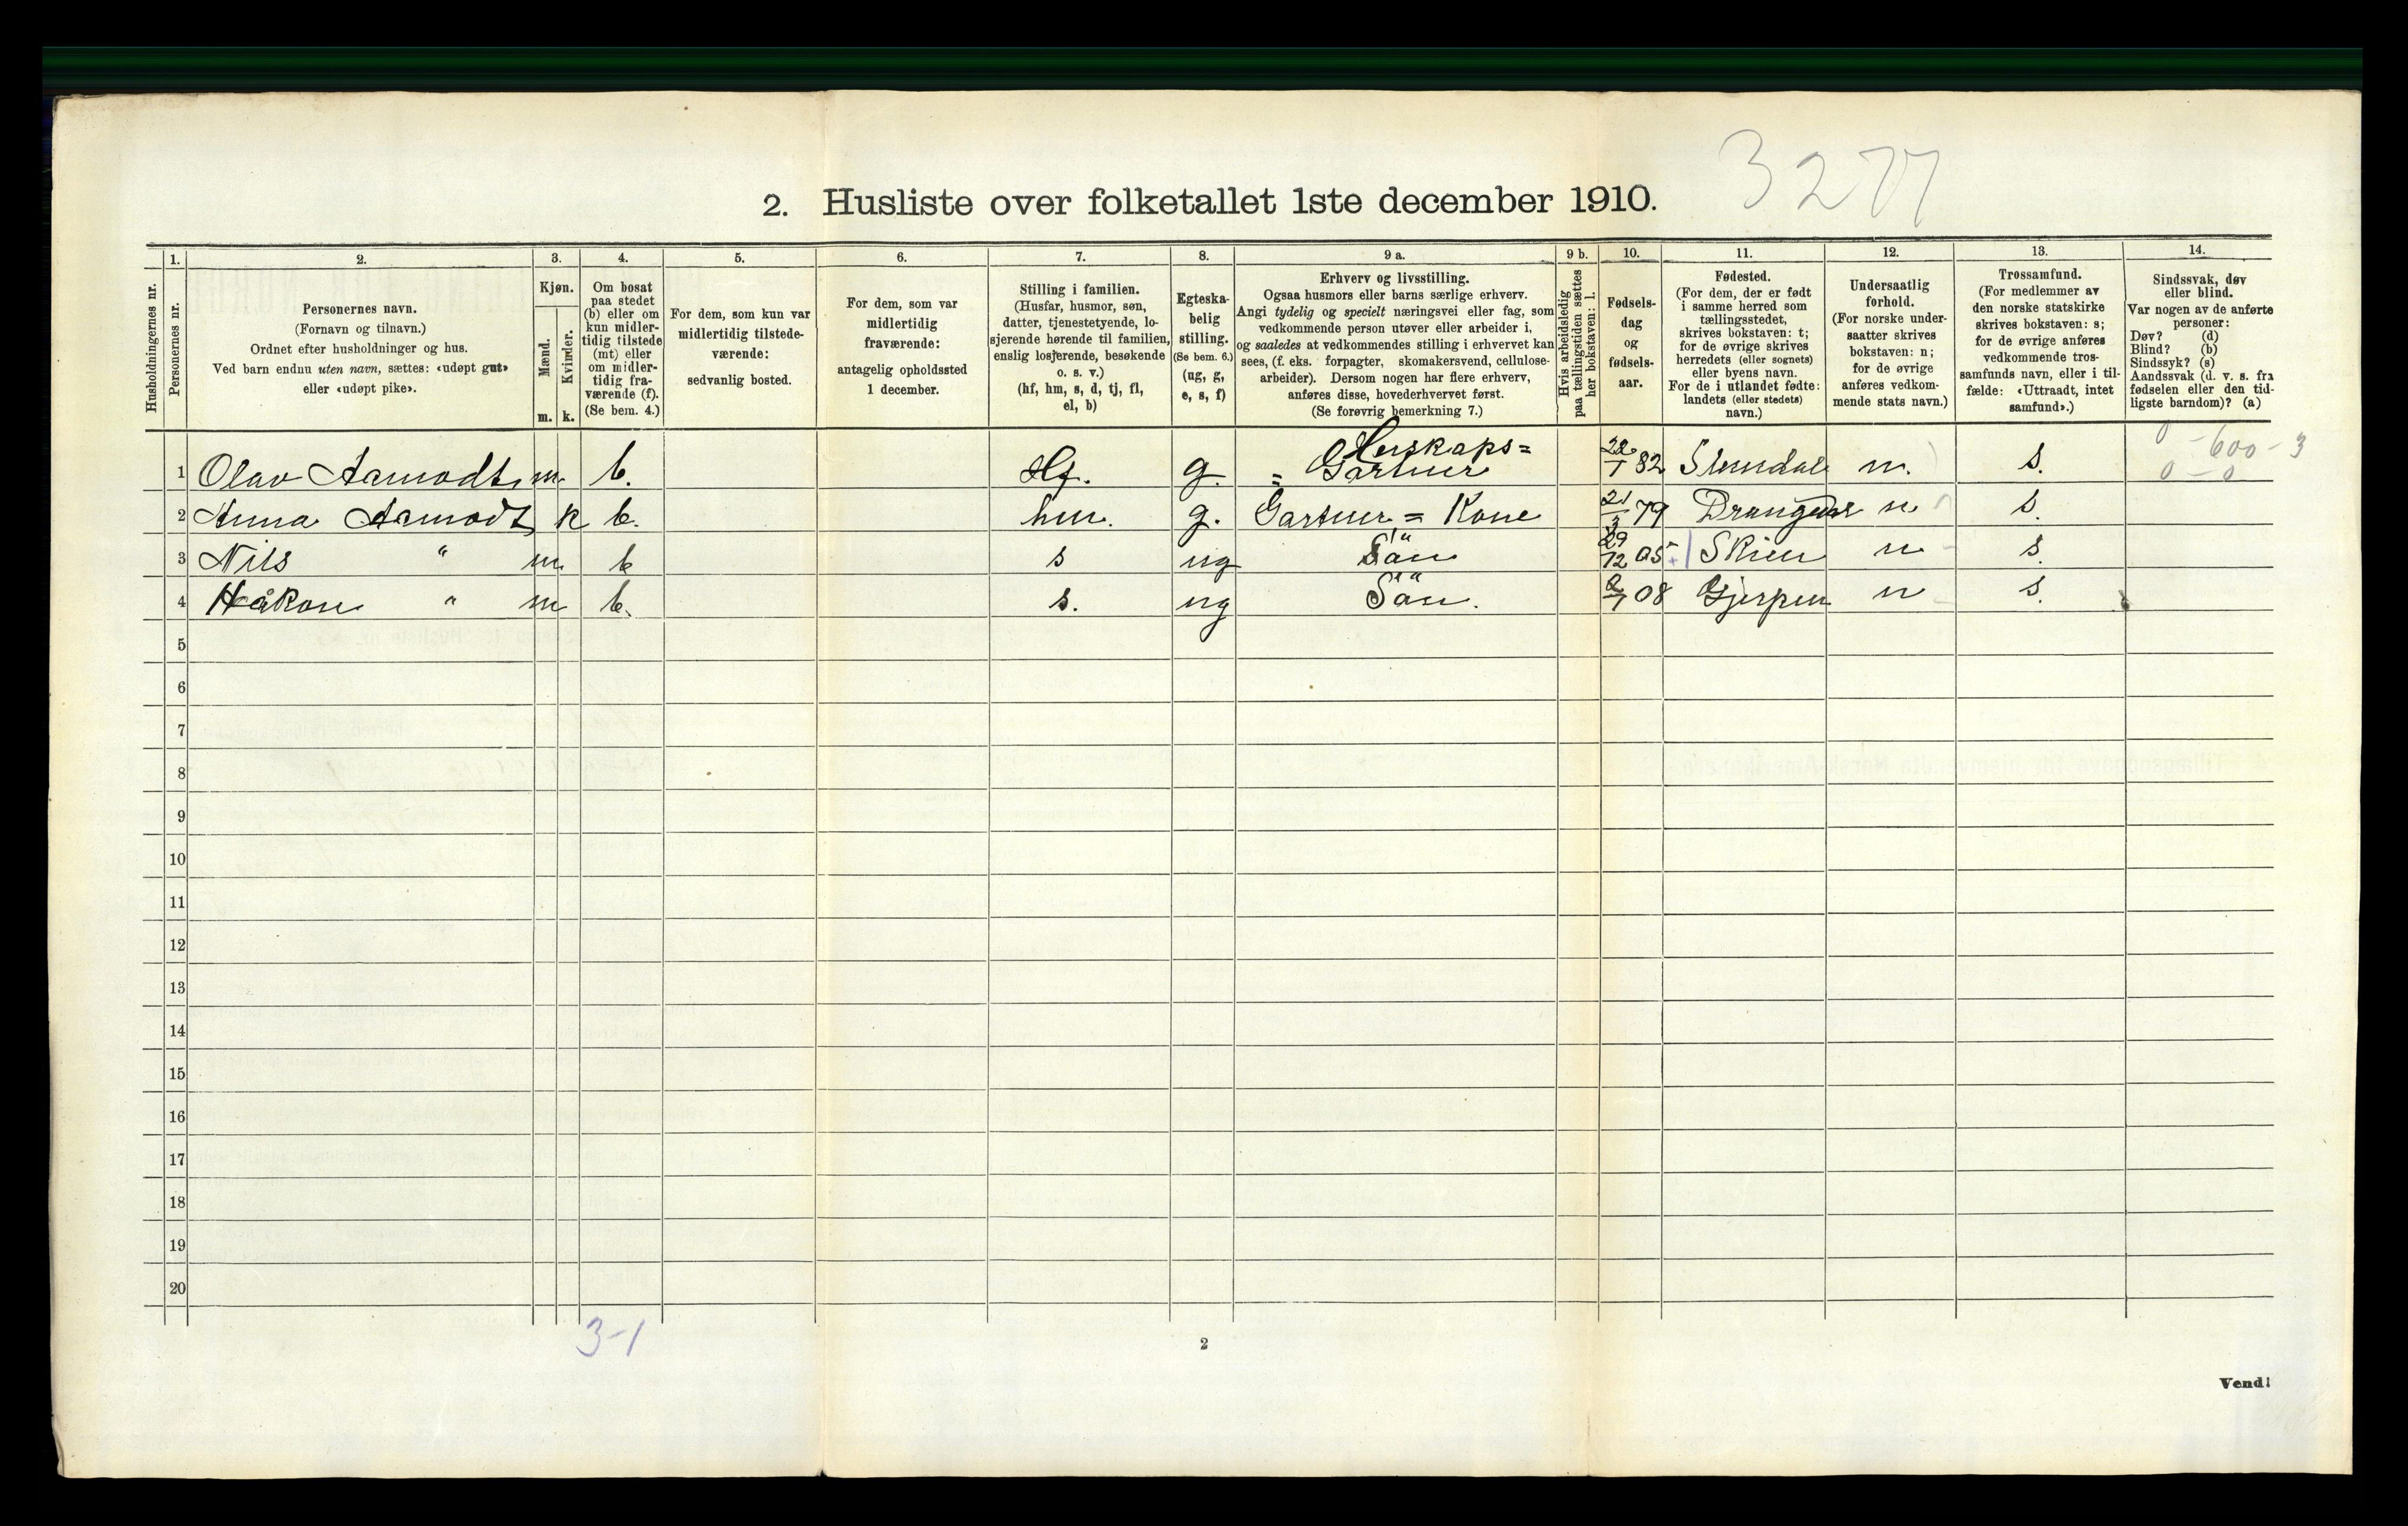 3277
2. Husliste over folketallet 1ste december 1910.
Husholdningernes nr.
1.
Personernes nr.
2.
Personernes navn.
(Fornavn og tilnavn.)
Ordnet efter husholdninger og hus.
Ved barn endnu uten navn, sættes: «udøpt gut»
eller «udøpt pike».
3.
Kjøn.
Mænd.
Kvinder.
m. k.
4.
Om bosat
paa stedet
(b) eller om
kun midler-
tidig tilstede
(mt) eller
om midler-
tidig fra-
værende (f).
(Se bem. 4.)
5.
For dem, som kun var
midlertidig tilstede-
værende:
sedvanlig bosted.
6.
For dem, som var
midlertidig
fraværende:
antagelig opholdssted
1 december.
7.
Stilling i familien.
(Husfar, husmor, søn,
datter, tjenestetyende, lo-
sjerende hørende til familien,
enslig losjerende, besøkende
o. s. v.)
(hf, hm, s, d, tj, fl,
el, b)
8.
Egteska-
belig
stilling.
(Se bem. 6.)
(ug, g,
e, s, f)
9 a.
Erhverv og livsstilling.
Ogsaa husmors eller barns særlige erhverv.
Angi tydelig og specielt næringsvei eller fag, som
vedkommende person utøver eller arbeider i,
og saaledes at vedkommendes stilling i erhvervet kan
sees, (f. eks. forpagter, skomakersvend, cellulose-
arbeider). Dersom nogen har flere erhverv,
anføres disse, hovederhvervet først.
(Se forøvrig bemerkning 7.)
9 b.
Hvis arbeidsledig
paa tællingstiden sættes
her bokstaven: l.
10.
Fødsels-
dag
og
fødsels-
aar.
11.
Fødested.
(For dem, der er født
i samme herred som
tællingsstedet,
skrives bokstaven: t;
for de øvrige skrives
herredets (eller sognets)
eller byens navn.
For de i utlandet fødte:
landets (eller stedets)
navn.)
12.
Undersaatlig
forhold.
(For norske under-
saatter skrives
bokstaven: n;
for de øvrige
anføres vedkom-
mende stats navn.)
13.
Trossamfund.
(For medlemmer av
den norske statskirke
skrives bokstaven: s;
for de øvrige anføres
vedkommende tros-
samfunds navn, eller i til-
fælde: «Uttraadt, intet
samfund».)
14.
Sindssvak, døv
eller blind.
Var nogen av de anførte
personer:
Døv? (d)
Blind? (b)
Sindssyk? (s)
Aandssvak (d. v. s. fra
fødselen eller den tid-
ligste barndom)? (a)
0 - 600 - 3
0 - 0
1 Olav Aamodt m b. Hf. g. Herskaps= Gartner 22/1 82 n. s.
2 Anna Aamodt k b. hm. g. Gartner = Kone 21/3 79 Drangedal n s.
3 Nils " m b s ug Sön 29/12 05 Skien n s.
4 Håkon " m b. s. ug Sön. 2/7 08 Gjerpen n s.
5
6
7
8
9
10
11
12
13
14
15
16
17
18
19
20
3-1
2
Vend!